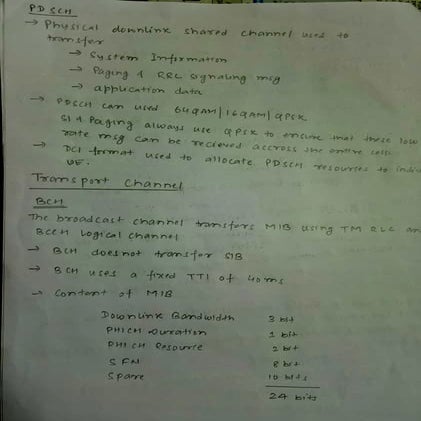 PDSCH
→ Physical downlink shared channel used to
transfer
→ System Information
→ Paging & RRC signaling msg
→ application data
→ PDSCH can used 64QAM/16QAM/QPSK
SI & Paging always use QPSK to ensure that these low
rate msg can be recieved accross the entire cell.
→ DCI format used to allocate PDSCH resources to indi
UE.
Transport Channel
BCH
The broadcast channel transfers MIB using TM RLC an
BCCH Logical channel
→ BCH doesnot transfer SIB
→ BCH uses a fixed TTI of 40ms
→ Content of MIB
Downlink Bandwidth 3 bit
PHICH Duration 1 bit
PHICH Resource 2 bit
SFN 8 bit
Spare 10 bits
24 bits